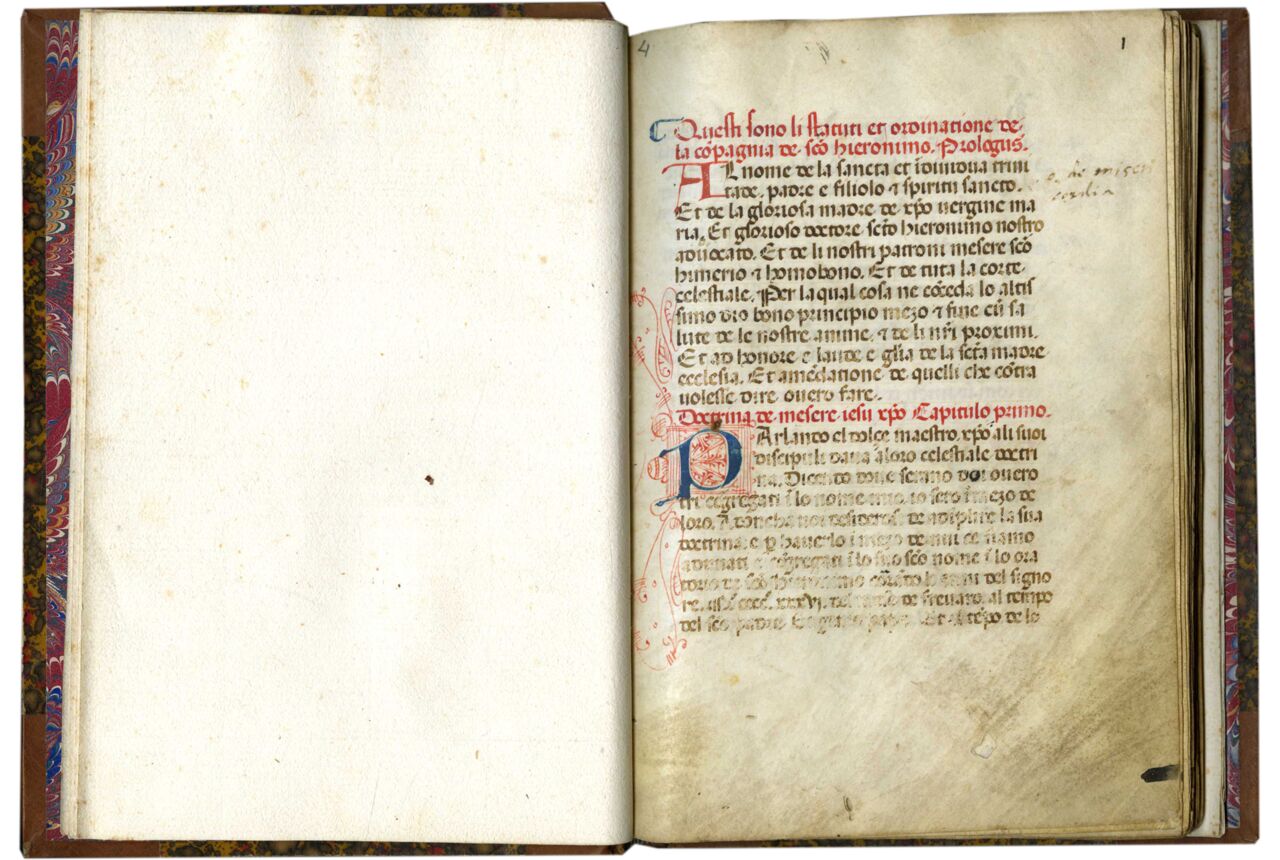 4
1
Questi sono li statuti et ordinatione de
la cõpagnia de scõ hieronimo. Prologus.
AL nome de la sancta et īdiuidua trini
tade, padre e filiolo ⁊ spiritu sancto.
o de miseri
cordia
Et de la gloriosa madre de xp̄o uergine ma
ria. Et glorioso doctore sctõ hieronimo nostro
aduocato. Et de li nostri patroni mesere scõ
himerio ⁊ homobono. Et de tuta la corte
celestiale. Per la qual cosa ne cõceda lo altis
simo dio bono principio mezo ⁊ fine cũ sa
lute de le nostre anime, ⁊ de li nr̃i proximi.
Et ad honore e laude e gl̃ia de la sctã madre
ecclesia. Et amẽdatione de quelli che cõtra
uolesse dire ouero fare.
Doctrina de mesere iesu xp̄o Capitulo primo.
PArlando el dolce maestro xp̄o ali suoi
discipuli daua a loro celestiale doctri
na. Dicendo doue serano doi ouero
tri cõgregati ĩ lo nome mio, io sero ĩ mezo de
loro. Adoncha noi desiderosi de adĩplire la sua
doctrina, e ꝑ hauerlo ĩ mezo de nui ce siamo
adunati e cõgregati ĩ lo suo scõ nome ĩ lo ora
torio de scõ hieronimo del signo
re. cccc. xxxvi. del de freuaro, al tempo
del scõ padre papa. Et al tẽpo de lo